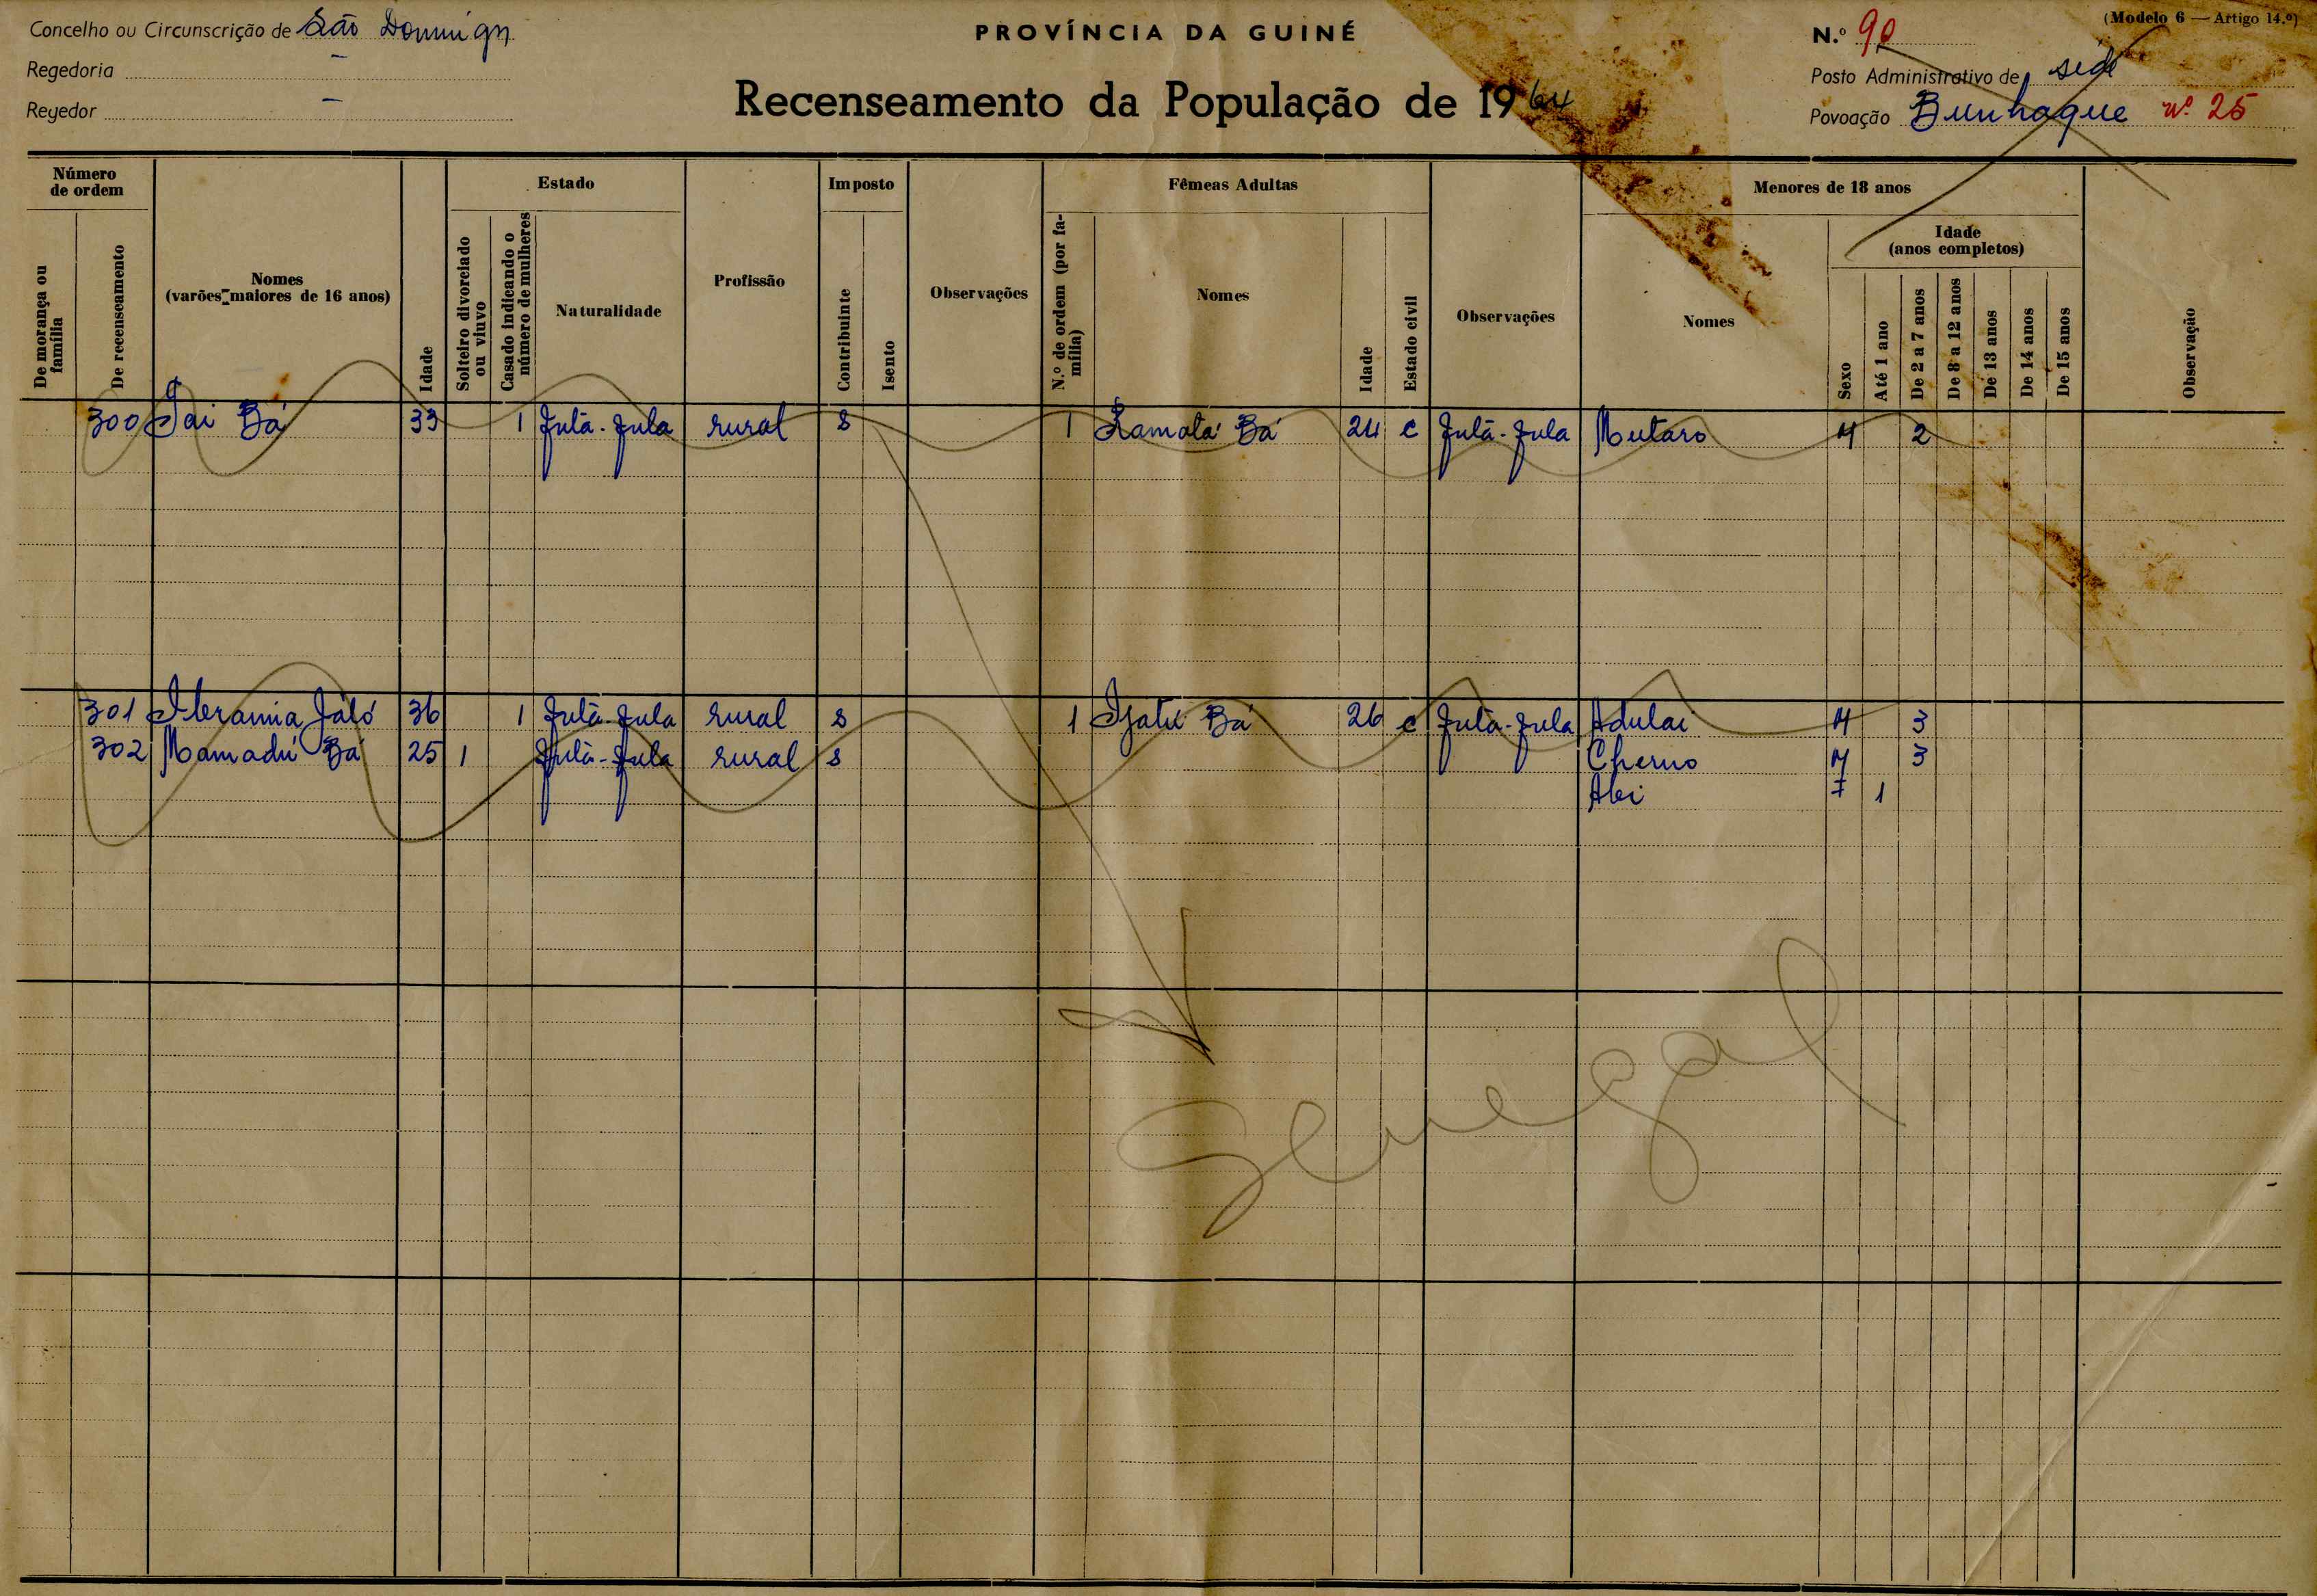 Concelho ou Circunscrição de São Domingos
PROVÍNCIA DA GUINÉ
N.º 90
(Modelo 6 — Artigo 14.º)
Regedoria –
Posto Administrativo de Sede
Regedor –
Recenseamento da População de 1964
Povoação Bunhaque nº 25
Número de ordem
De morança ou família
De recenseamento
Nomes
(varões maiores de 16 anos)
Idade
Estado
Solteiro divorciado ou viuvo
Casado indicando o número de mulheres
Naturalidade
Profissão
Imposto
Contribuinte
Isento
Observações
Fêmeas Adultas
N.º de ordem (por família)
Nomes
Idade
Estado civil
Observações
Menores de 18 anos
Nomes
Sexo
Idade
(anos completos)
Até 1 ano
De 2 a 7 anos
De 8 a 12 anos
De 13 anos
De 14 anos
De 15 anos
Observação
300 Jai Bá 33 1 Futâ-fula rural S 1 Ramata Bá 24 c Futâ-fula Mutaro M 2
301 Ibramia Jaló 36 1 Futâ-fula rural S 1 Djatu Bá 26 c Futâ-fula Adulai M 3
302 Mamadú Bá 25 1 Futâ-fula rural S Cherno M 3
Abi F 1
Senegal